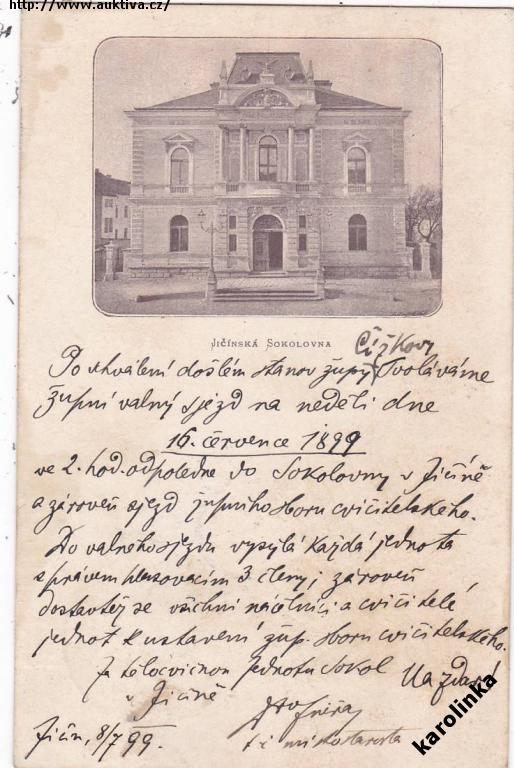 http://www.auktiva.cz/
Jičínská Sokolovna
Čížkovy
Po schválení došlém stanov župy svoláváme
župní valný sjezd na neděli dne
16. července 1899
ve 2. hod. odpoledne do Sokolovny v Jičíně
a zároveň sjezd župního sboru cvičitelského.
Do valného sjezdu vysýlá každá jednota
s právem hlasovacím 3 členy; zároveň
dostavtež se všichni náčelníci a cvičitelé
jednot k ustavení žup. sboru cvičitelského.
Za tělocvičnou jednotu Sokol Na zdar!
v Jičíně
Jičín, 8/7 99.
t. č. místostarosta
karolinka